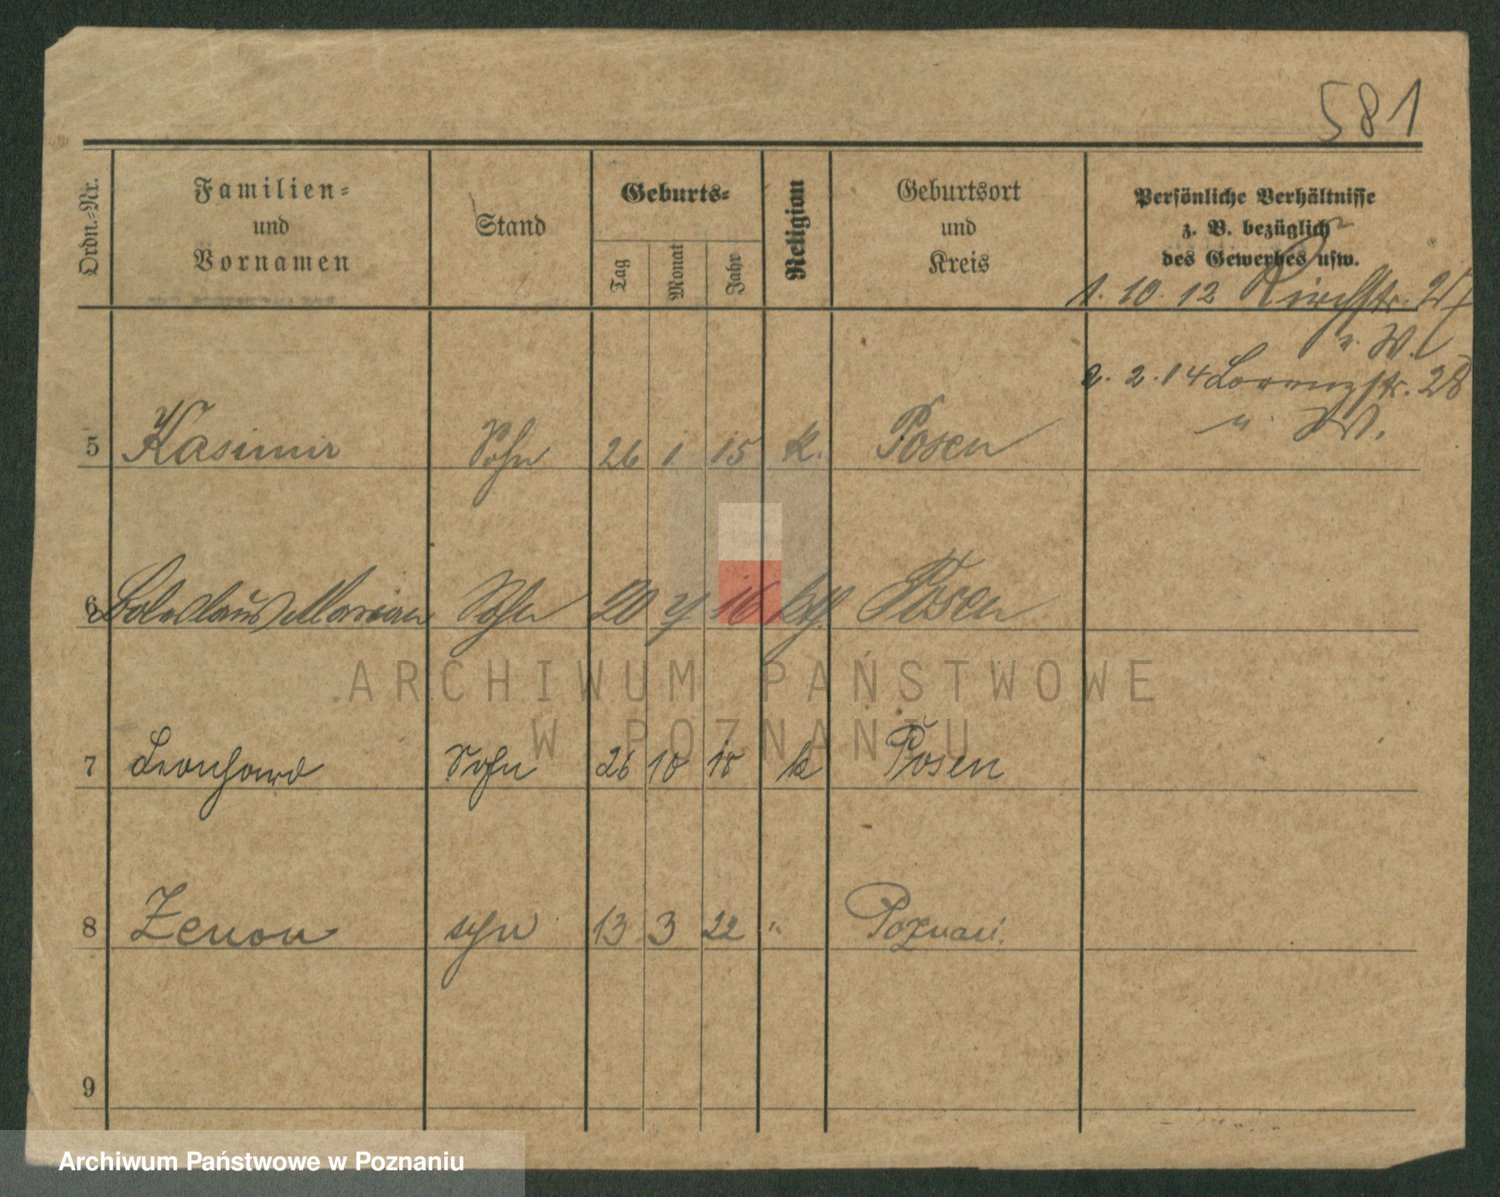 581
Ordn.=Nr.
Familien=
und
Vornamen
Stand
Geburts=
Tag
Monat
Jahr
Religion
Geburtsort
und
Kreis
Persönliche Verhältnisse
z. B. bezüglich
des Gewerbes usw.
1. 10. 12 Kirchstr. 27
u. W.
2. 2. 14 Lorenzstr. 28
u. W.
5 Kasimir Sohn 26 1 15 k. Posen
6 Boleslaus Marian Sohn 20 7 16 kth. Posen
7 Leonhard Sohn 26 10 18 k Posen
8 Zenon syn 13 3 22 " Poznań.
9
ARCHIWUM PAŃSTWOWE
W POZNANIU
Archiwum Państwowe w Poznaniu